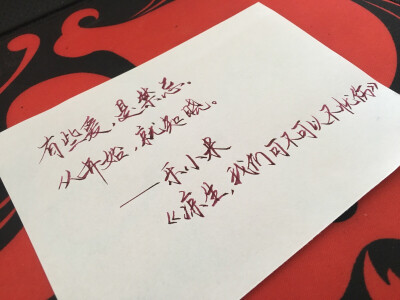 有些爱,是禁忌.
从开始,就知晓。
——乐小米
《凉生,我们可不可以不忧伤》